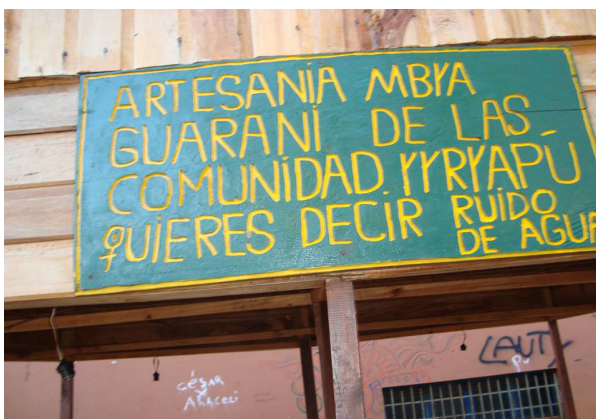 ARTESANÍA MBYA
GUARANÍ DE LAS
COMUNIDAD YYRYAPÚ
QUIERES DECIR RUIDO
DE AGUA
LAUTY
césar
y
Araceli